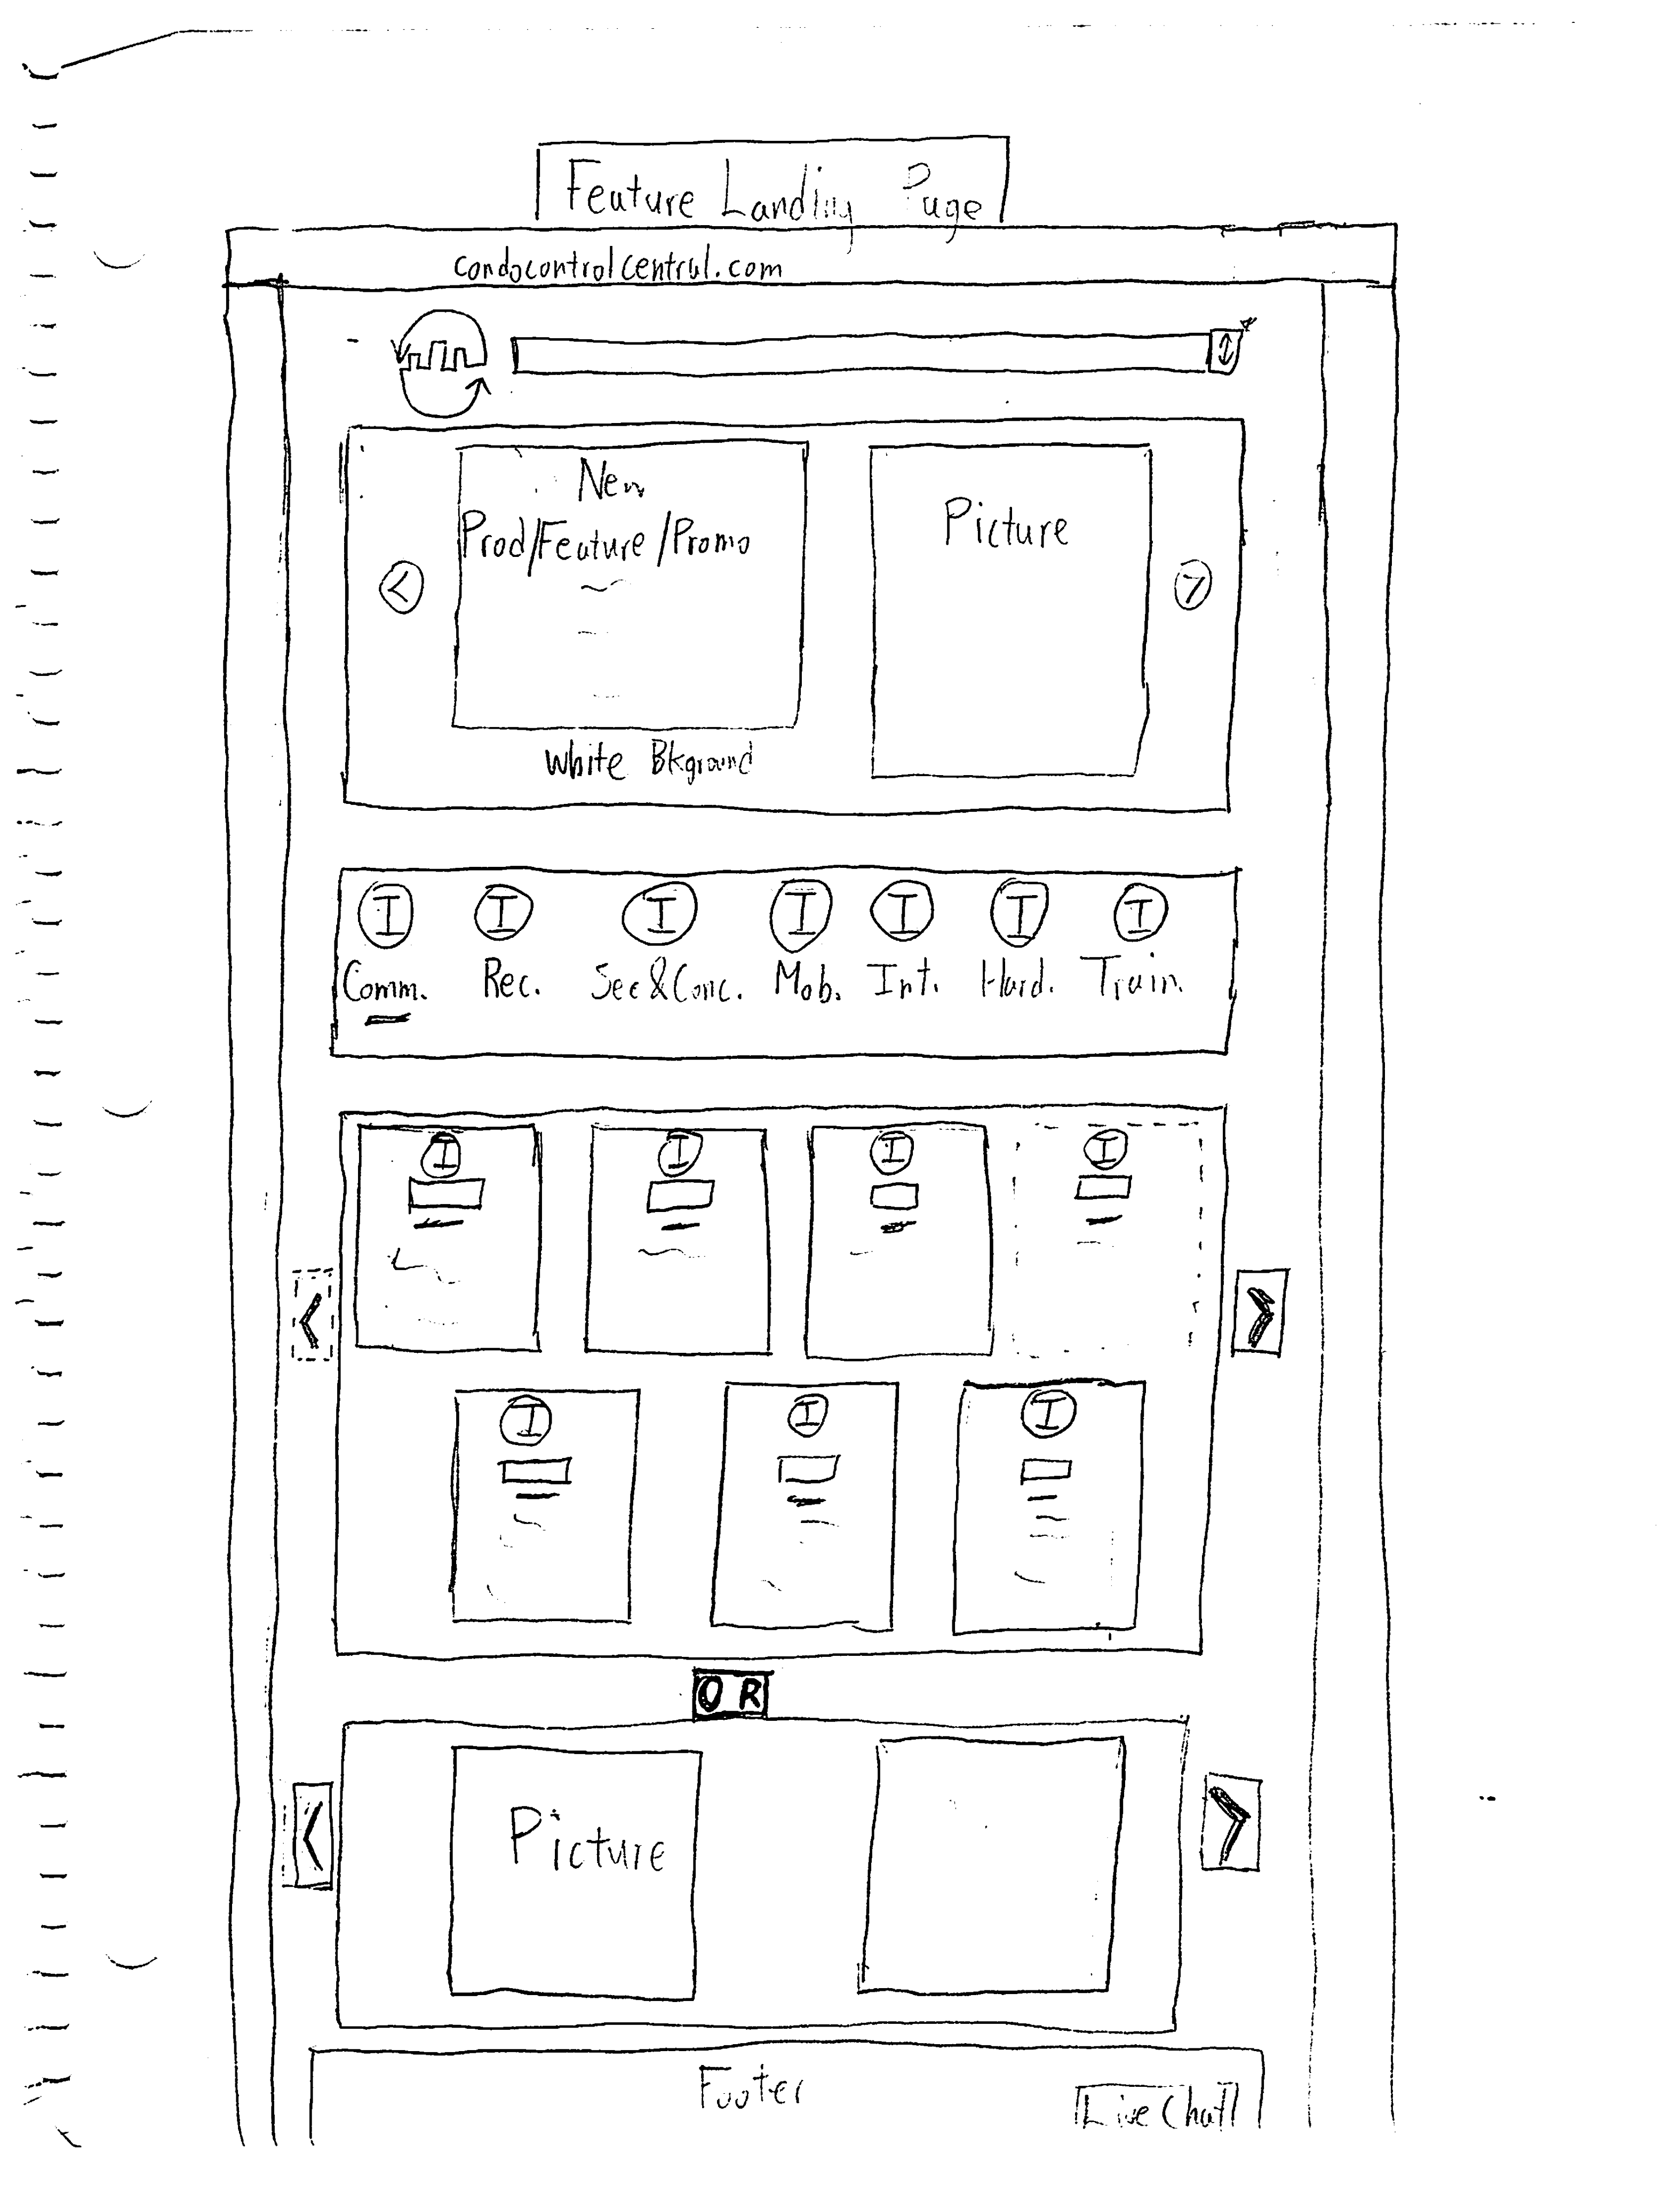 Feature Landing Page
condocontrolcentral.com
New
Prod/Feature/Promo
Picture
White Bkground
I I I I I I I
Comm. Rec. Sec&Conc. Mob. Int. Hard. Train.
I I I I
I I I
OR
Picture
Footer
Live Chat